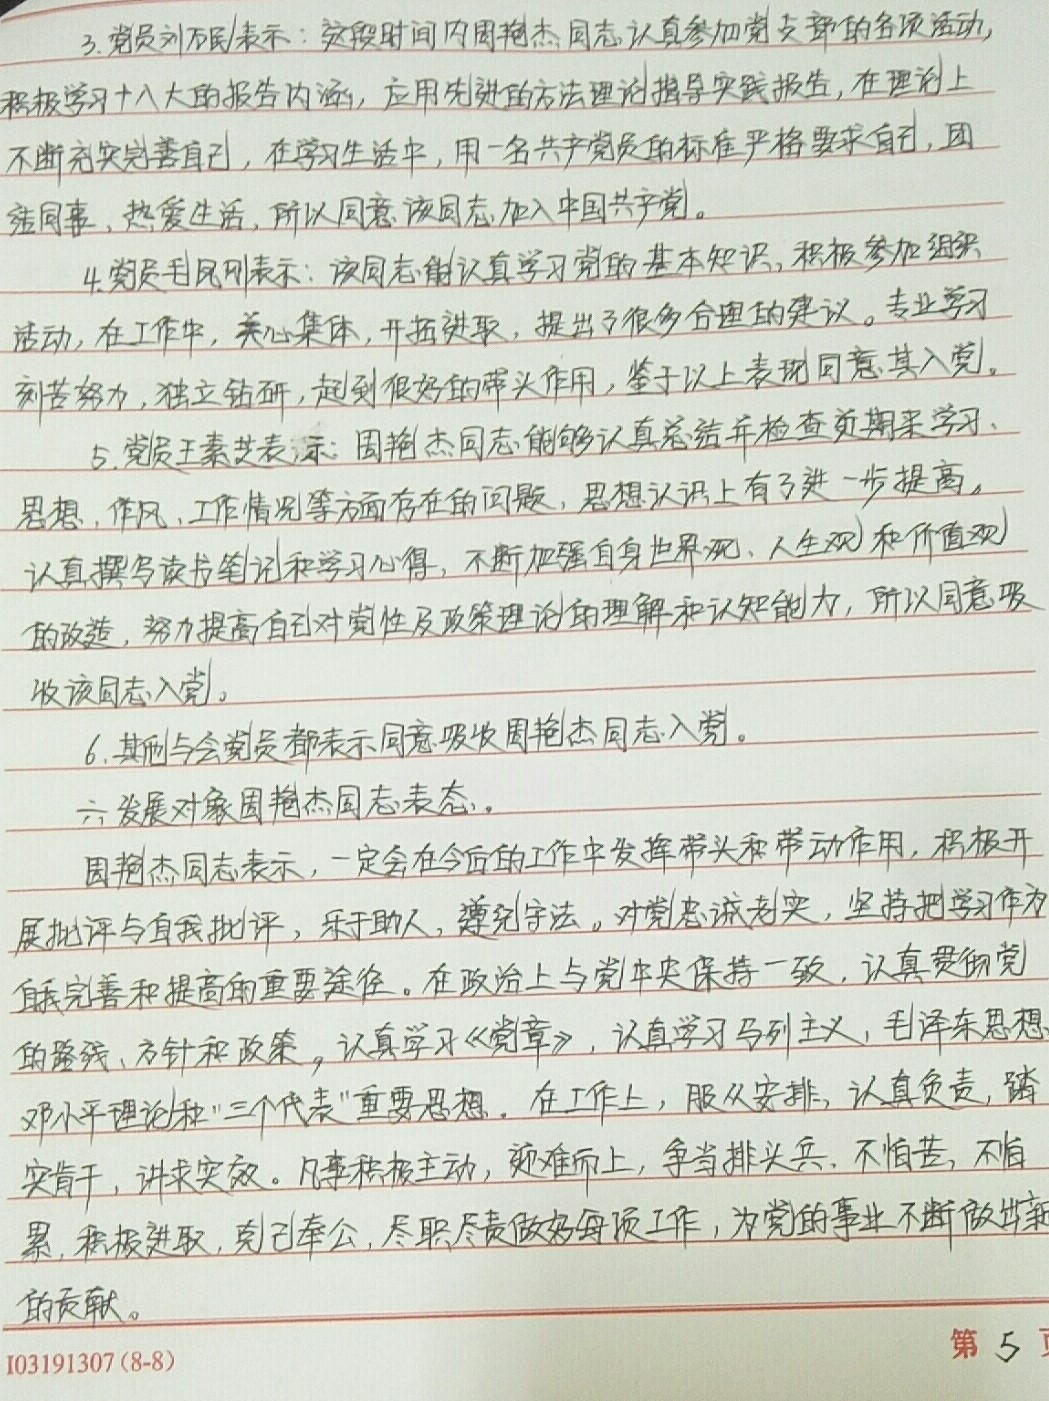 3.党员刘万民表示：这段时间内周艳杰同志认真参加党支部的各项活动，
积极学习十八大的报告内涵，应用先进的方法理论指导实践报告，在理论上
不断充实完善自己，在学习生活中，用一名共产党员的标准严格要求自己，团
结同事、热爱生活，所以同意该同志加入中国共产党。
4.党员毛凤刚表示：该同志能认真学习党的基本知识、积极参加组织
活动，在工作中，关心集体，开拓进取，提出了很多合理的建议。专业学习
刻苦努力，独立钻研，起到很好的带头作用，鉴于以上表现同意其入党。
5.党员王素芝表示：周艳杰同志能够认真总结并检查近期来学习、
思想、作风、工作情况等方面存在的问题，思想认识上有了进一步提高。
认真撰写读书笔记和学习心得，不断加强自身世界观、人生观和价值观
的改造，努力提高自己对党性及政策理论的理解和认知能力，所以同意吸
收该同志入党。
6.其他与会党员都表示同意吸收周艳杰同志入党。
六、发展对象周艳杰同志表态。
周艳杰同志表示，一定会在今后的工作中发挥带头和带动作用，积极开
展批评与自我批评，乐于助人，遵纪守法。对党忠诚老实，坚持把学习作为
自我完善和提高的重要途径。在政治上与党中央保持一致，认真贯彻党
的路线、方针和政策。认真学习《党章》，认真学习马列主义，毛泽东思想
邓小平理论和"三个代表"重要思想。在工作上，服从安排，认真负责，踏
实肯干，讲求实效。凡事积极主动，迎难而上，争当排头兵、不怕苦，不怕
累，积极进取，克己奉公，尽职尽责做好每项工作，为党的事业不断做出新
的贡献。
I03191307(8-8)
第 5 页